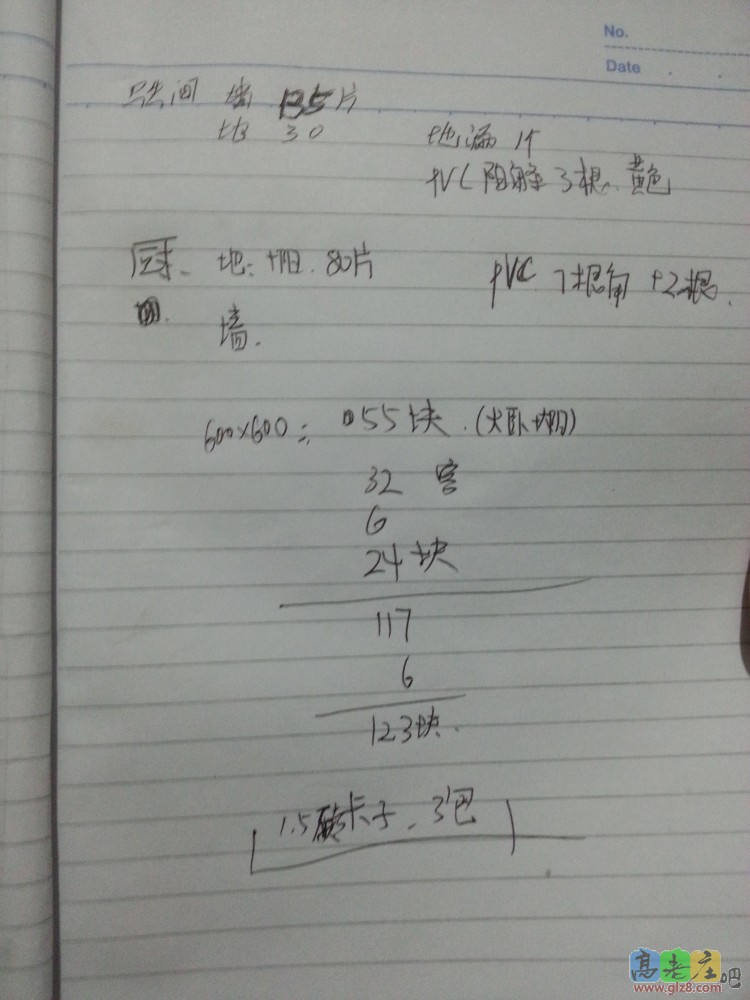 No.
Date
卫生间 墙 135片
地 30
地漏 1个
PVC 阳角 3根. 黄色
地: 阳. 80片
PVC 7根角 +2根.
墙.
600×600: 55块.(大卧 阳)
32 客
6
24块
117
6
123块.
1.5 砖卡子. 3包
高老庄吧
www.glz8.com